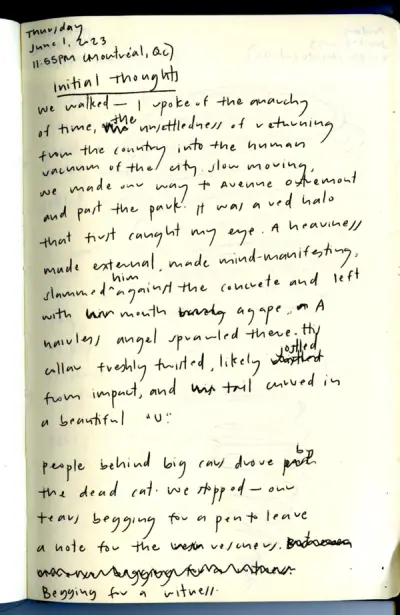 Thursday
June 1, 2023
11:55PM (Montréal, Qc)
Initial Thoughts
We walked — I spoke of the anarchy
of time, the unsettledness of returning
from the country into the human
vacuum of the city. Slow moving,
we made our way to Avenue Outremont
and past the park. It was a red halo
that first caught my eye. A heaviness
made external, made mind-manifesting,
slammed him against the concrete and left
with mouth agape. A
hairless angel sprawled there. His
collar freshly twisted, likely jostled
from impact, and tail curved in
a beautiful "U."
People behind big cars drove by
the dead cat. We stopped — our
tears begging for a pen to leave
a note for the rescuers.
Begging for a witness.